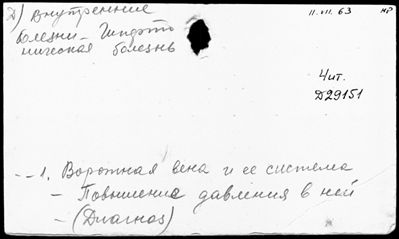 Д) Внутренние
болезни - Гиперто
ническая болезнь
11.VII.63 НР
Чит.
Д29151
1. Воротная вена и ее система
- Повышение давления в ней
- (Диагноз)